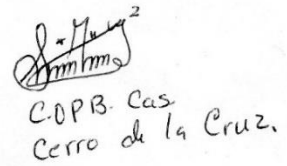 C.O.P.B. Cas
Cerro de la Cruz.